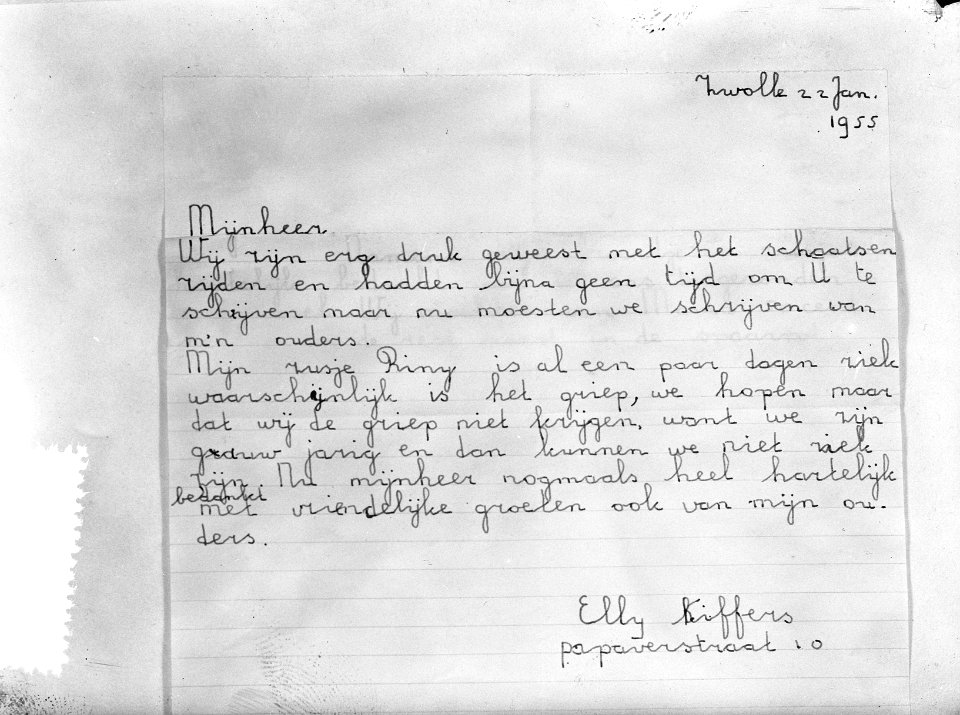 Zwolle 22 Jan.
1955
Mijnheer.
Wij zijn erg druk geweest met het schaatsen
rijden en hadden bijna geen tijd om U te
schrijven maar nu moesten we schrijven van
m'n ouders.
Mijn zusje Riny is al een paar dagen ziek
waarschijnlijk is het griep, we hopen maar
dat wij de griep niet krijgen, want we zijn
gauw jarig en dan kunnen we niet ziek
zijn. Nu mijnheer nogmaals heel hartelijk
bedankt
met vriendelijke groeten ook van mijn ou-
ders.
Elly Kiffers
papaverstraat 10